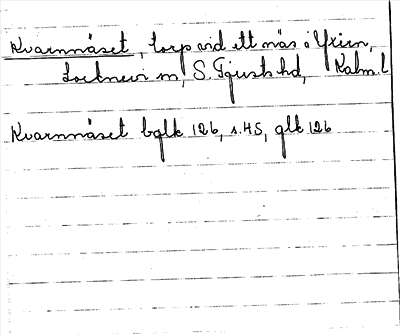 Kvarnnäset, torp vid ett näs i Yxern,
Locknevi sn, S. Tjusts hd, Kalm. l
Kvarnnäset bglk 126, s. 45, glk 126